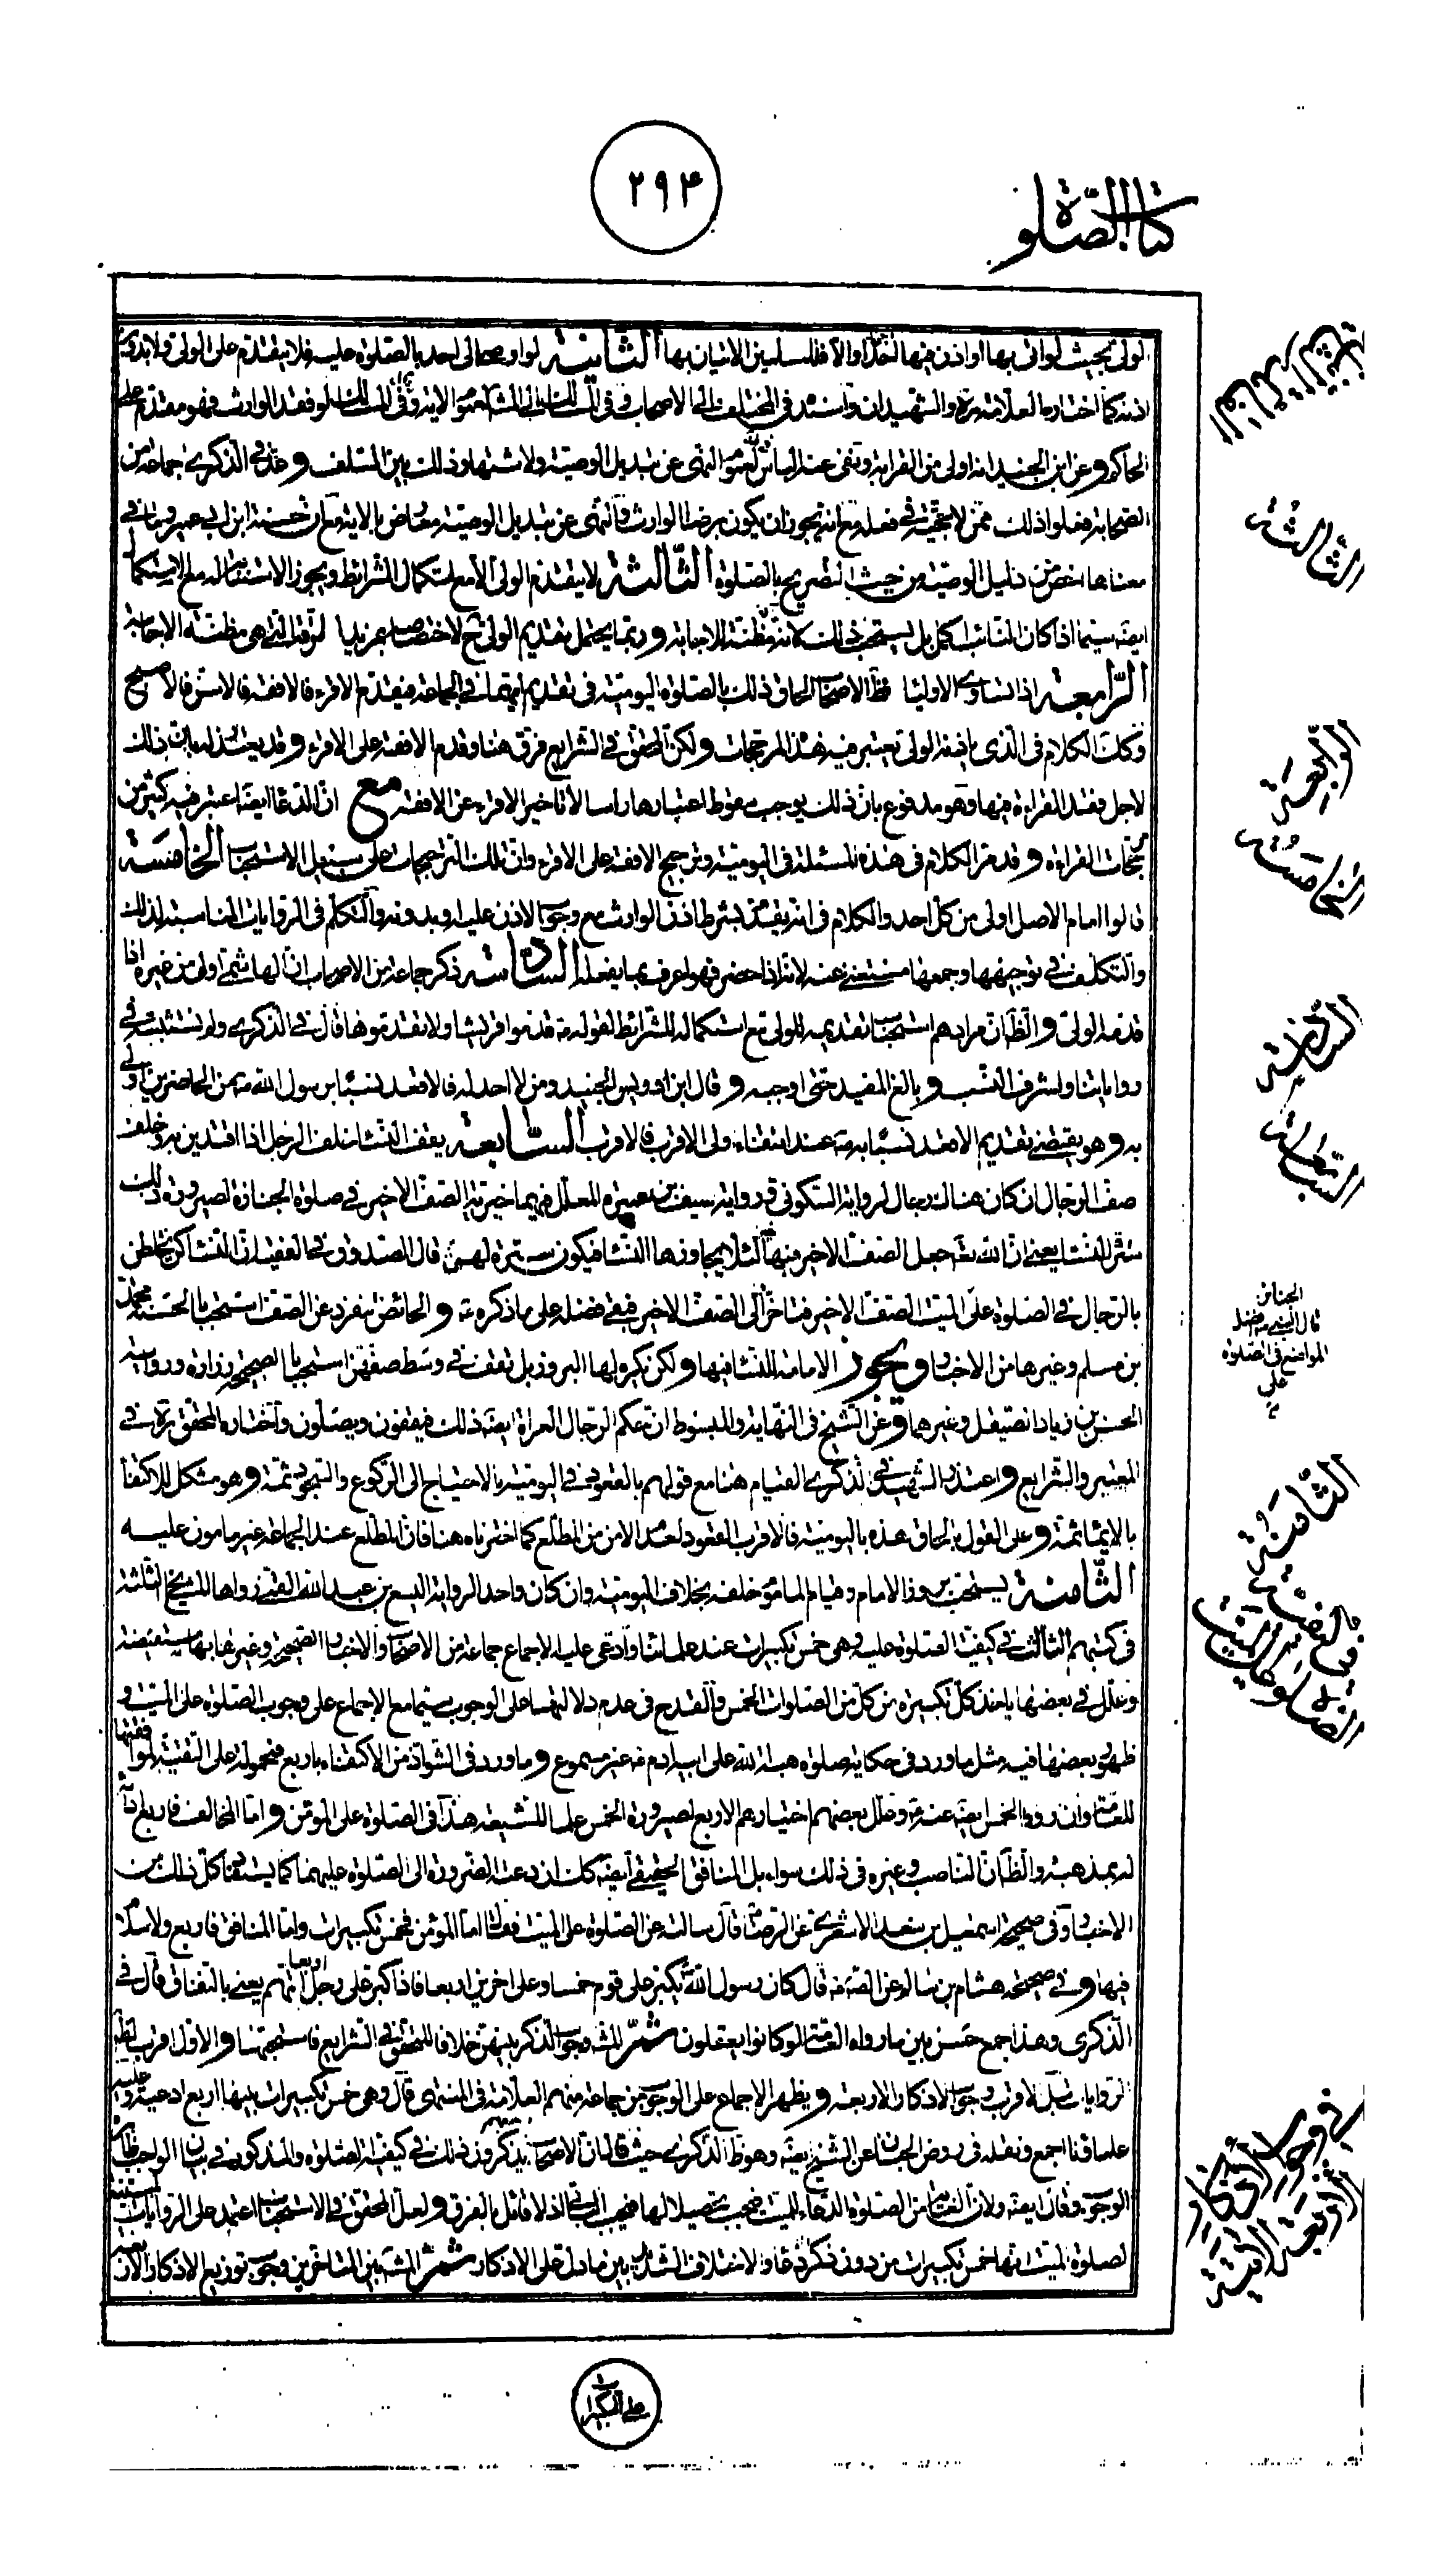 ۲۹۴
كتاب الصلوة
الولى بحيث لو اتى بها او اذن فيها لتحمل والا فللمسلمين الاتيان بها الثانية لو اوصى الى احد بالصلوة عليه فلا يتقدم على الولى ولا بد من
اذنه كما اختاره العلامة ره والشهيدان واسنده في المختلف الى الاصحاب وفى المسالك الى المشهور لعموم الاية وفى المسالك لو فقد الوارث فهو مقدم على
الحاكم وعن ابن الجنيد انه اولى من القرابة ونفى عنه الباس لعموم النهى عن تبديل الوصية ولاشتهار ذلك بين السلف وعد في الذكرى جماعة من
الصحابة فعلوا ذلك ممن لا حجية في فعله مع انه يجوز ان يكون برضا الوارث والنهى عن تبديل الوصية معارض بالاية مع ان حسنة ابن ابى عمير وما في
معناها اخص من دليل الوصية من حيث التصريح بالصلوة الثالثة لا يتقدم الولى الا مع استكمال الشرائط ويجوز الاستنابة له مع الاستكمال
ايضا سيما اذا كان النائب اكمل بل يستحب ذلك لانه مظنة للاجابة وربما يحتمل تقديم الولى ح لاختصاصه بمزيد الرقة التي هى مظنة الاجابة
الرابعة اذا تساوى الاوليا فظ الاصحاب الحاق ذلك بالصلوة اليومية فى تقديم ايهما في الجماعة فيقدم الاقرء فالافقه فالاسن فالاصبح
وكذلك الكلام فى الذى ياذنه الولى تعتبر فيه هذه المرجحات ولكن المحقق في الشرايع فرق هنا وقدم الافقه على الاقرء وقد يعتذر له بان ذلك
لاجل فقد القراءة فيها وهو مدفوع بان ذلك يوجب سقوط اعتبارها راسا لا تاخير الاقرء عن الافقه مع ان الدعا ايضا اعتبر فيه كثير من
مرجحات القراءة وقد مر الكلام فى هذه المسئلة فى اليومية وترجيح الافقه على الاقرء وان تلك الترجيحات على سبيل الاستحباب الخامسة
قالوا امام الاصل اولى من كل احد والكلام فى انه يتقدم بشرط اذن الوارث مع وجوب الاذن عليه او بدونه والتكلم فى الروايات المناسبة لذلك
والتكلف في توجيهها وجمعها مستغنى عنه لانه اذا حضر فهو اعرف بما يفعله السادسة ذكر جماعة من الاصحاب ان الهاشمى اولى من غيره اذا
قدمه الولى والظ ان مرادهم استحباب تقديمه للولى مع استكماله للشرائط لقوله ص قدموا قريشا ولا تقدموها قال في الذكرى ولم نستثبته في
رواياتنا ولشرف النسب وبالغ المفيد حتى اوجبه وقال ابن الجنيد ومن لا احد له فالاقعد نسبا برسول الله ص من الحاضرين اولى
به وهو يقتضى تقديم الاقعد نسبا به ص عند انتفاء ولى الاقرب فالاقرب السابعة يقف النساء خلف الرجل اذا اقتدين به وخلف
صف الرجال ان كان هناك رجال لرواية السكونى ورواية سيف بن عميرة المعلل فيهما خيرية الصف الاخير في صلوة الجنازة لصيرورة ذلك
سترة للنسا يعنى ان الله تعالى جعل الصف الاخير منها لئلا يجاوزها النسا فيكون سترة لهن قال الصدوق في الفقيه ان النسا كن يختلطن
بالرجال في الصلوة على الميت فقال النبى ص الصف الاخير فبقى فضله على ما ذكره ع والحائض تنفرد عن الصف استحبابا لحسنة محمد
بن مسلم وغيرها من الاخبار ويجوز الامامة للنسا فيها ولكن يكره لها البروز بل تقف في وسط صفهن استحبابا لصحيحة زرارة ورواية
الحسن بن زياد الصيقل وغيرهما وعن الشيخ فى النهاية والمبسوط ان حكم الرجال العراة ايضا ذلك فيقفون ويصلون واختاره المحقق ره في
المعتبر والشرايع واعتذر الشهيد في الذكرى للقيام هنا مع قولهم بالقعود في اليومية بالاحتياج الى الركوع والسجود ثمة وهو مشكل للاكتفا
بالايماء ثمة وعلى القول بالحاق هذه باليومية فالاقرب القعود لعدم الامن من المطلع كما اخترناه هنا فان المطلع عند الجماعة غير مامون عليه
الثامنة يستحب بروز الامام وقيام الماموم خلفه بخلاف اليومية وان كان واحدا لرواية اليسع بن عبد الله القمى رواها المشايخ الثلثة
فى كتبهم الثالث في كيفية الصلوة عليه وهى خمس تكبيرات عند علمائنا وادعى عليه الاجماع جماعة من الاصحاب والاخبار الصحيحة وغيرها بها مستفيضة
وعلل في بعضها باخذ كل تكبيرة من كل من الصلوات الخمس والقدح فى عدم دلالتها على الوجوب سيما مع الاجماع على وجوب الصلوة على الميت و
ظهور بعضها فيه مثل ما ورد فى حكاية صلوة هبة الله على ابيه ادم ع غير مسموع وما ورد فى الشواذ من الاكتفاء باربع محمولة على التقية لموافقتها
للعامة وان رووا الخمس ايضا عنه ص وعلل بعضهم اختيارهم الاربع لصيرورة الخمس علما للشيعة هذا فى الصلوة على المؤمن واما المخالف فاربع الزاما
له بمذهبه والظ ان الناصب وغيره فى ذلك سواء بل المنافق الحقيقى ايضا كك ان دعت الضرورة الى الصلوة عليهما كما يستفاد كل ذلك من
الاخبار وفى صحيحة اسمعيل بن سعد الاشعرى عن الرضا ع قال سالته عن الصلوة على الميت فقال اما المؤمن فخمس تكبيرات واما المنافق فاربع ولا سلام
فيها وفي صحيحة هشام بن سالم عن الصادق ع قال كان رسول الله ص يكبر على قوم خمسا وعلى اخرين اربعا فاذا كبر على رجل اربعا اتهم يعنى بالنفاق قال في
الذكرى وهذا جمع حسن بين ما رواه العامة لو كانوا يعقلون ثم المشهور وجوب الذكر بينهن خلافا للمحقق في الشرايع فاستحبها والاول اقرب لظ
الروايات بل الاقرب وجوب الاذكار الاربعة ويظهر الاجماع على الوجوب من جماعة منهم العلامة فى المنتهى قال وهى خمس تكبيرات بينها اربع ادعية وعليه
علماؤنا اجمع ونقله فى روض الجنان عن الشيخ ايضا وهو ظ الذكرى حيث قال ان الاصحاب باجمعهم يذكرون ذلك في كيفية الصلوة والمذكور في بيان الواجب ظاهر
الوجوب وقال ايضا ولان الغاية من الصلوة الدعاء للميت فيجب تحصيلا لها فيجب الباقي اذ لا قائل بالفرق ولعل المحقق في الاستحباب اعتمد على الروايات المستفيضة
لصلوة الميت انها خمس تكبيرات من دون ذكر دعاء والاختلاف الشديد بين ما دل على الاذكار ثم المشهور بين المتاخرين وجوب توزيع الاذكار الاربعة
الثالثة
الرابعة
الخامسة
السادسة
السابعة
الجنائز
قال النبى ص افضل
المواضع فى الصلوة
على
الثامنة
في كيفية
الصلوة على الميت
في وجوب الاذكار
الاربعة
على التكبيرات